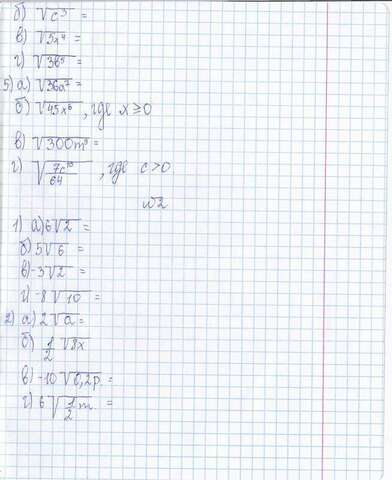 б) √c⁵ =
в) √5x⁴ =
г) √3b⁵ =
5) а) √36a⁷ =
б) √45x⁶, где x ≥ 0
в) √300m⁹ =
г) √7c¹⁰/64, где c > 0
№2
1) а) 6√2 =
б) 5√6 =
в) -3√2 =
г) -8√10 =
2) а) 2√a =
б) 1/2 √8x
в) -10√0,2p =
г) 6√1/2 m =